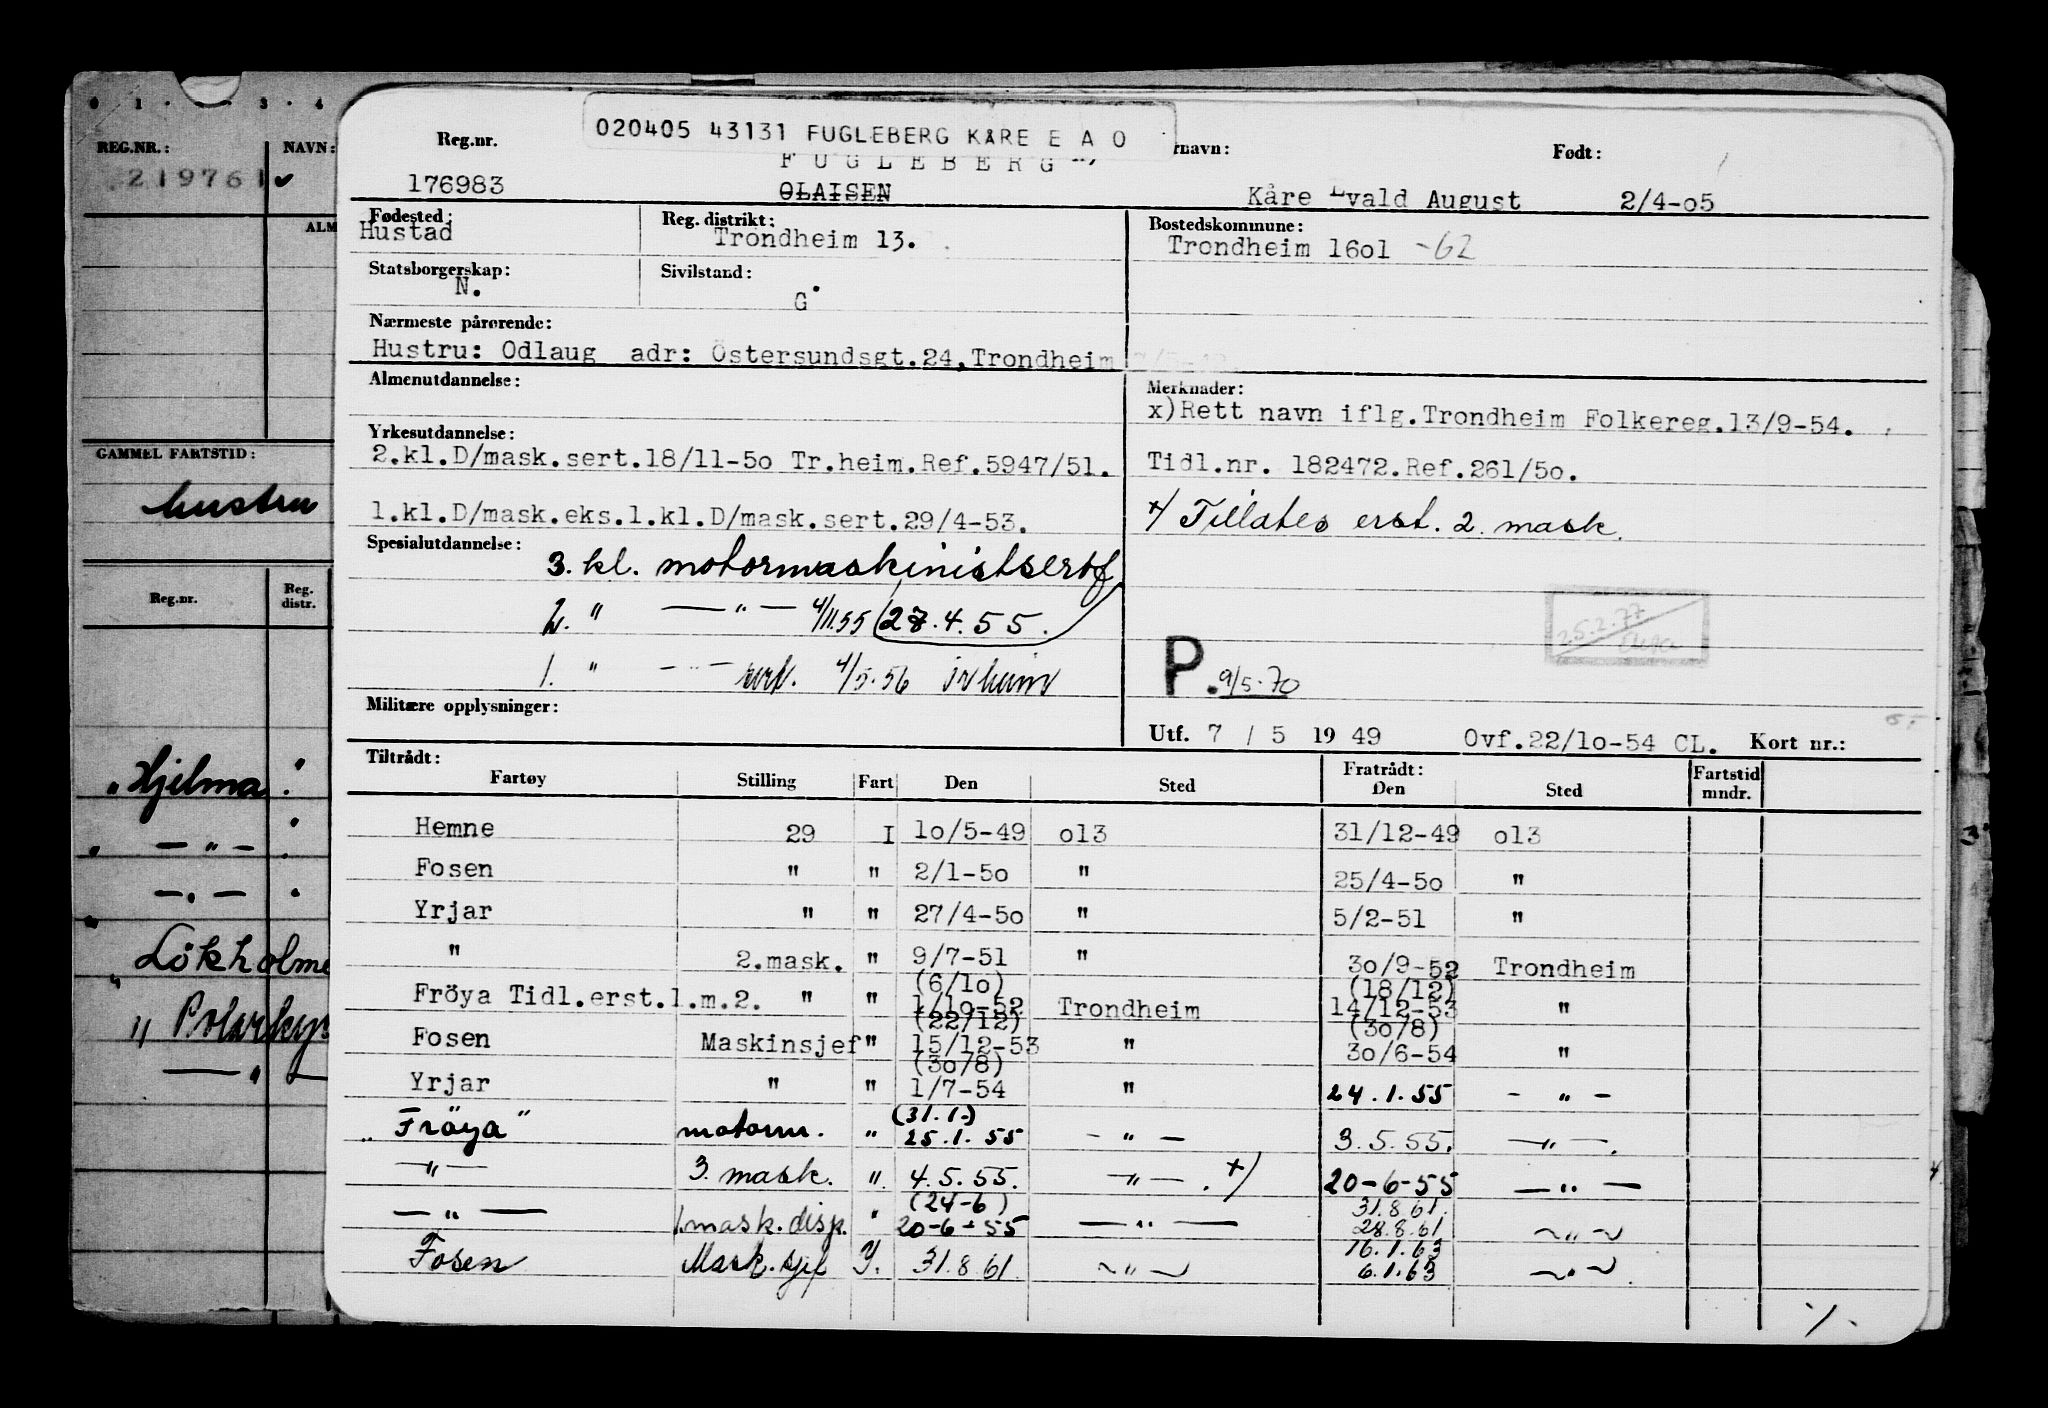 0 1 - - 3 - 4
REG.NR.: NAVN:
219761
ALM
GAMMEL FARTSTID:
hustru
Reg.nr. Reg. distr.
"Hjelma
— " —
— " —
Lökholme
" Polarkys
— " —
020405 43131 FUGLEBERG KÅRE E A O
Reg.nr. rnavn: Født:
FUGLEBERG x)
176983 OLAISEN Kåre Evald August 2/4-o5
Fødested: Reg. distrikt: Bostedskommune:
Hustad Trondheim 13. Trondheim 16o1 -62
Statsborgerskap: Sivilstand:
N. G
Nærmeste pårørende:
Hustru: Odlaug adr: Östersundsgt.24,Trondheim
Almenutdannelse: Merknader:
x)Rett navn iflg.Trondheim Folkereg.13/9-54.
Yrkesutdannelse:
2.kl.D/mask.sert.18/11-5o Tr.heim.Ref.5947/51. Tidl.nr. 182472.Ref.261/5o.
1.kl.D/mask.eks.1.kl.D/mask.sert.29/4-53. +/ Tillates erst. 2. mask.
Spesialutdannelse:
3. kl. motormaskinistsertf
2. " — " — 4/11.55 28.4.55.
25.2.77
1. " — " — 4/5.56 P. 9/5-70
Militære opplysninger:
Utf. 7 / 5 19 49 Ovf.22/1o-54 CL. Kort nr.:
Tiltrådt: Fratrådt: Fartstid
Fartøy Stilling Fart Den Sted Den Sted mndr.
Hemne 29 I 1o/5-49 o13 31/12-49 o13
Fosen " " 2/1-5o " 25/4-5o "
Yrjar " " 27/4-5o " 5/2-51 "
" 2.mask. " 9/7-51 " 30/9-52 Trondheim
(6/1o) (18/12)
Fröya Tidl.erst.1.m.2. " " 1/1o-52 Trondheim 14/12-53 "
(22/12) (3o/8)
Fosen Maskinsjef " 15/12-53 " 3o/6-54 "
(3o/8)
Yrjar " " 1/7-54 " 24.1.55 - " -
(31.1.)
"Fröya" motorm. " 25.1.55 - " - 3.5.55. — " —.
— " — 3. mask. ". 4.5.55. — " — . +) 20-6-55 — " —
(24-6) 31.8.61.
— " — 1.mask.disp. " 20-6-55 — " — 28.8.61 ~ " ~
16.1.63
Fosen Mask.sjef Y. 31.8.61. ~ " ~ 6.1.63 ~ " ~
3